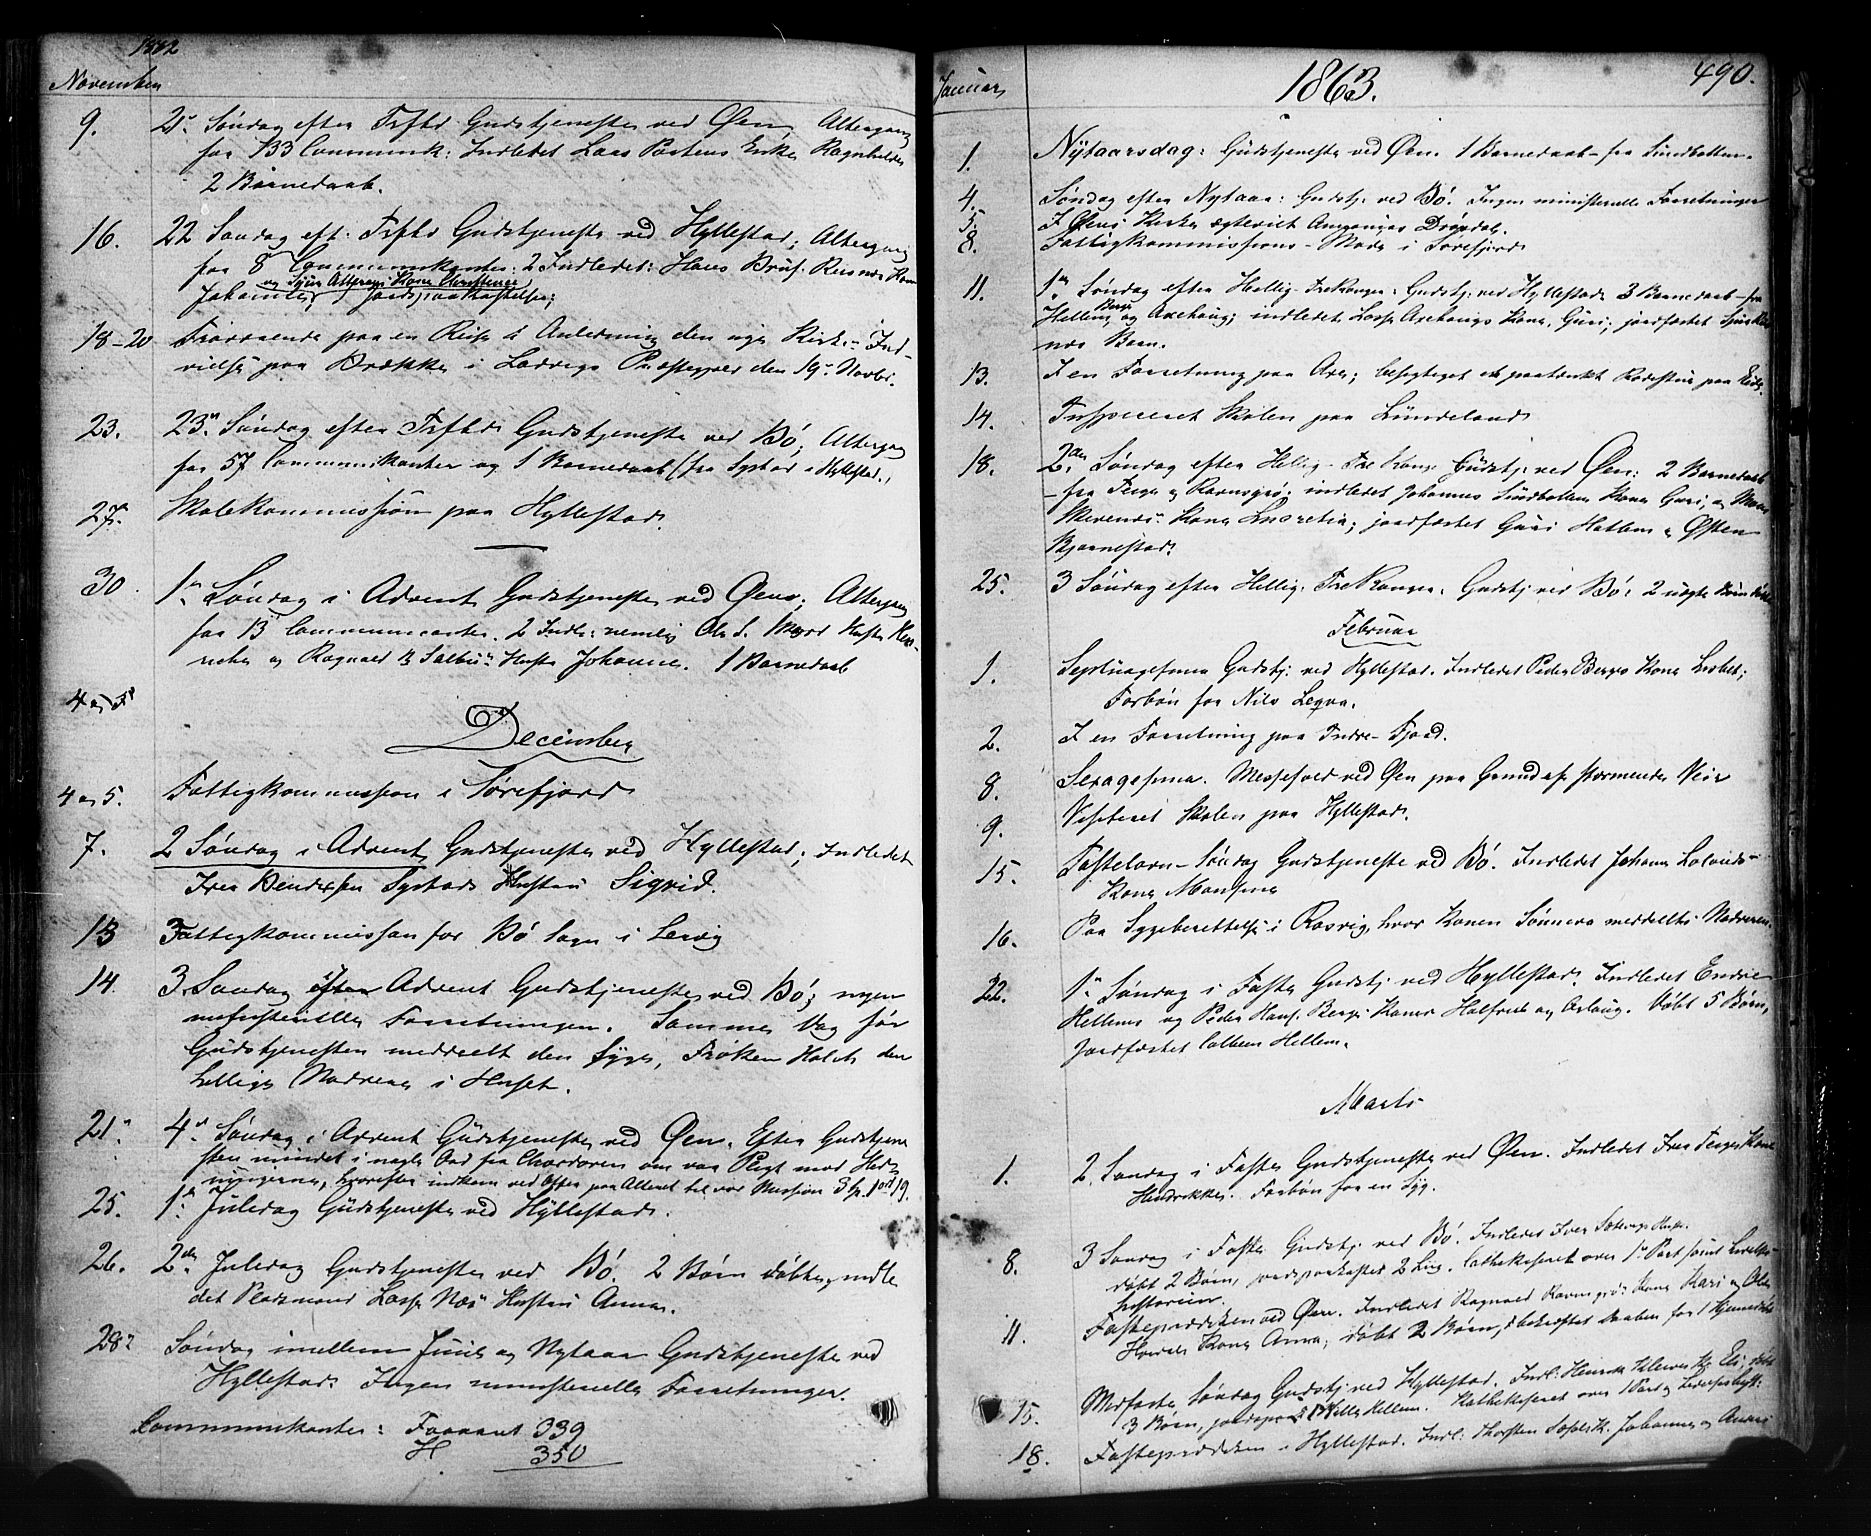 1862
November
9. 21n Søndag efter Trftd Gudstjeneste ved Øen, Altergang
for 133 Communik: Indledet Laas Pastens Enke Ragnhilda
2 Barnedaab.
16. 22 Søndag eft. Trftd Gudstjeneste ved Hyllestad; Altergang
for 8 Communikanter: 2 Indledet: Hans Kone
Johanne, og Kone Christense Jordspaakastelse;
18-20 Fraværende paa en Reise i Anledning den nye Kirke-Ind-
vielse paa Brække i Ladvigs Præstegjeld den 19n Novbr.
23. 23n Søndag efter Trftd Gudstjeneste ved Bö; Altergang
for 57 Communikanter og 1 Barnedaab (fra Systad i Hyllestad.)
27n Skolekommission paa Hyllestad.
30. 1n Søndag i Advent Gudstjeneste ved Øen; Altergang
for 13 Communicanter. 2 Indl: nemlig Ole S. Hustru
og Ragnald Hustr Johanne. 1 Barnedaab
4 og 5
December
4 og 5. Fattigkommission i Sørefjord
7. 2 Søndag i Advent, Gudstjeneste ved Hyllestad; Indledet
Iver Systads Hustru Sigrid.
13 Fattigkommission for Bö Sogn i Lervig
14. 3 Søndag i Advent Gudstjeneste ved Bö; ingen
ministerielle Forretninger. Samme Dag før
Gudstjenesten meddeelt den Syge, Frøken Holck den
hellige Nadvere i Huset.
21n 4n Søndag i Advent Gudstjeneste ved Øen. Efter Gudstjene
sten mindet i nogle Ord fra Chordøren om vor Pligt mod Hed-
ningerne, hvorefter indkom ved Offer paa Alteret til vor Mission 3 Sp. 1 ort 19.
25. 1n Juledag Gudstjeneste ved Hyllestad.
26. 2den Juledag Gudstjeneste ved Bö. 2 Børn døbte, indle
det Pladsmand Lasse Næs Hustru Anna.
28n Søndag imellem Juul og Nytaar Gudstjeneste ved
Hyllestad. Ingen ministerielle Forretninger.
Communikanter: Foraaret 339
H 350
Januar 1863. 490.
1. Nytaarsdag: Gudstjeneste ved Øen. 1 Barnedaab - fra Sundbotten.
4. Søndag efter Nytaar: Gudstj. ved Bö. Ingen ministerielle Forretninger
5. I Øens Kirke ægteviet Drøsdal.
8. Fattigkommissions-Møde i Sørefjord
11. 1n Søndag efter Hellig-TreKonger: Gudstj. ved Hyllestad 3 Barnedaab - fra
Hellem, Berge og Axehaug; indledet Lasse Axehaugs Kone, Guri; jordfæstet
Barn.
13. I en Forretning paa Aven; besigtiget et paatænkt Rodestue paa
14. Inspiceret Skolen paa Lündeland
18. 2den Søndag efter Hellig-Tre Konge Gudstj: ved Øen: 2 Barnedaab
- fra Tenge og Ravnsgrø; indledet Johannes Sundbottens Kone Guri, og
Kone Lucretia; jordfæstet Guri Hatlem og Østen
Bjarnestad.
25. 3 Søndag efter Hellig Tre Konger. Gudstj ved Bö: 2 uægte Børn døbte
Februar
1. Septuagesima Gudstj: ved Hyllestad. Indledet Peder Berges Kone Lisbet;
Forbøn for Nils Legva.
2. I en Forretning paa Indre-Fjord.
8. Sexagesima. Messefald ved Øen paa Grund af stormende Veir
9. Visiteret Skolen paa Hyllestad.
15. Fastelavns-Søndag Gudstjeneste ved Bö. Indledet Johannes
Kone Monsine
16. Paa Sygeberettelse i Rosvig, hvor Konen Sønneva meddeltes Nadveren.
22. 1n Søndag i Faste Gudstj ved Hyllestad. Indledet Endre
Hellems og Peder Hans. Berges Koner Halfrid og Aslaug. Døbt 5 Børn,
Jordfæstet Hellem.
Marts
1. 2. Søndag i Faste Gudstjeneste ved Øen. Indledet Iver Tenges Kone
Hendrikke. Forbøn for en Syg.
8. 3 Søndag i Faste Gudstj ved Bö. Indledet Iver Hust.
døbt 2 Børn, jordpaakastet 2 Lig. Cathekiseret over 1n Part samt Lidelses-
historien.
11. Fasteprædiken ved Øen. Indledet Ragnald Ravnsgrøs Kone Kari og Ole
Kone Anna; døbt 2 Børn, bekræftet Daaben for 1 Hjemmedøbt
15. Midfaste Søndag Gudstj ved Hyllestad. Indl: Henrik Kone Eli; døbt
3 Børn, jordspaa Hellem. Kathekiseret over 1 Part og Lidelseshist:
18. Fasteprædiken i Hyllestad. Indl: Thorsten Johanne og